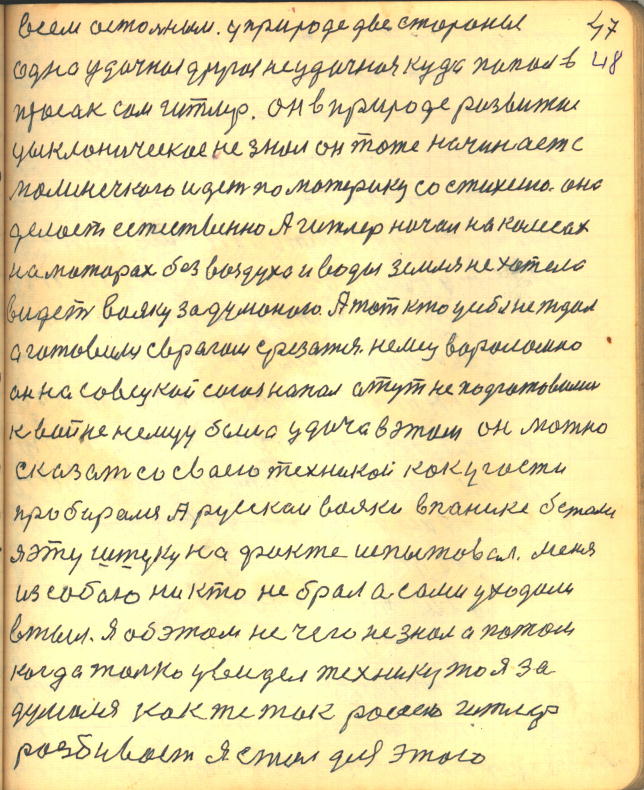 всем остояным. уприроде две стороны 47
одна удачная другая неудачная куда попал в 48
просак сам гитлер. он в природе развитие
цыклоническое не знал он тоже начинает с
малинечкого идет по материку состихею. она
делает естественно А гитлер начал на колесах
на моторах без воздуха и воды земля не хотела
видеть вояку задуманого. А тот кто усебя не ждал
а готовили сврагом срезатя. немец вороломно
он на совецкой союз напал а тут не подготовили
к войне немцу была удача в этом он можно
сказат со своею техникой как угости
пробираля А русскаи вояки в панике бежали
я эту штуку на факте испытовал. меня
из собаю никто не брал а сами уходили
в тыл. Я об этом не чего не знал а потом
когда толко увеидел технику то я за
думаля как же так росею гитлер
розбивает я стал для этого